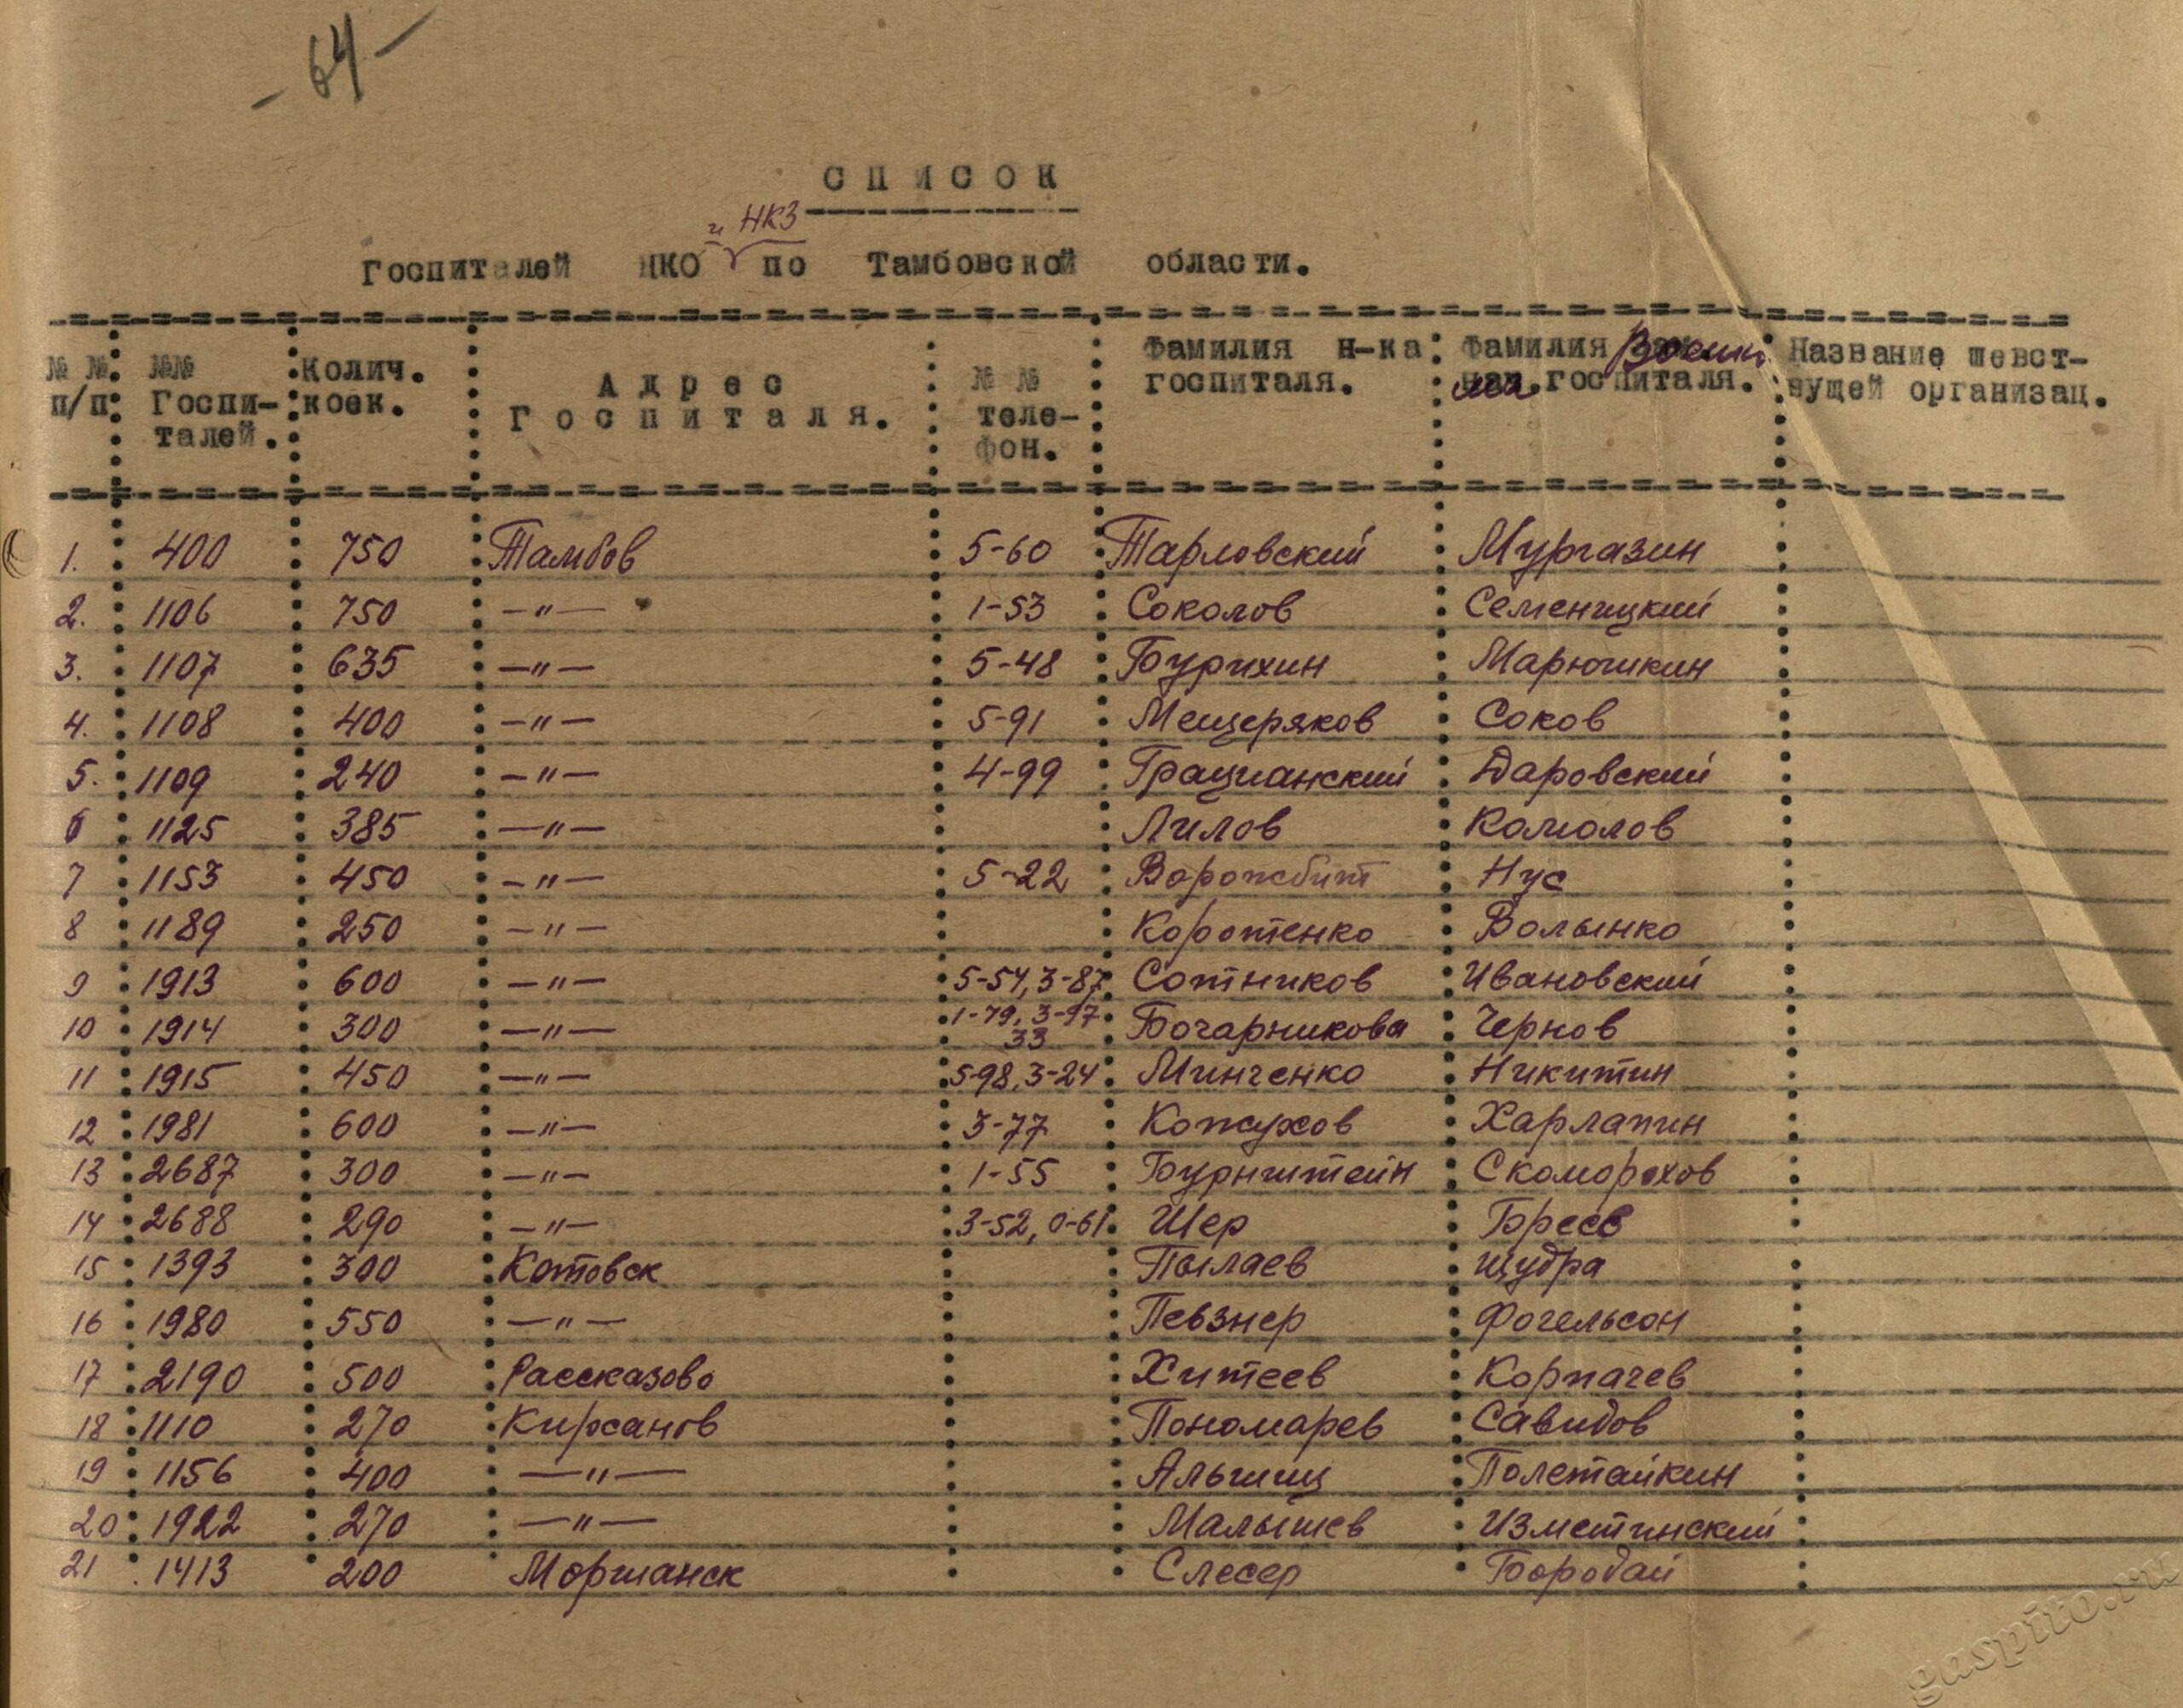 - 64 -
СПИСОК
и НКЗ
Госпиталей НКО по Тамбовской области.
№ № п/п №№ Госпи- талей. Колич. коек. Адрес Госпиталя. № № теле- фон. Фамилия н-ка госпиталя. Фамилия Военкома госпиталя. Название шевст- вущей организац.
1. 400 750 Тамбов 5-60 Тарловский Мургазин
2. 1106 750 —"— 1-53 Соколов Семеницкий
3. 1107 635 —"— 5-48 Бурихин Марюшкин
4. 1108 400 —"— 5-91 Мещеряков Соков
5. 1109 240 —"— 4-99 Грацианский Даровский
6 1125 385 —"— Лилов Комолов
7 1153 450 —"— 5-22 Ворожбит Нус
8 1189 250 —"— Коротенко Волынко
9 1913 600 —"— 5-54, 3-87 Сотников Ивановский
10 1914 300 —"— 1-79, 3-97 33 Бочарникова Чернов
11 1915 450 —"— 5-98, 3-24 Минченко Никитин
12 1981 600 —"— 3-77 Кожухов Харлапин
13 2687 300 —"— 1-55 Бурнштейн Скоморохов
14 2688 290 —"— 3-52, 0-61 Шер Бреев
15 1393 300 Котовск Пылаев Щудра
16 1980 550 —"— Певзнер Фогельсон
17 2190 500 Рассказово Хитеев Корпачев
18 1110 270 Кирсанов Пономарев Савидов
19 1156 400 —"— Альшиц Полетайкин
20 1922 270 —"— Малышев Изметинский
21 1413 200 Моршанск Слесер Бородай
gaspito.ru